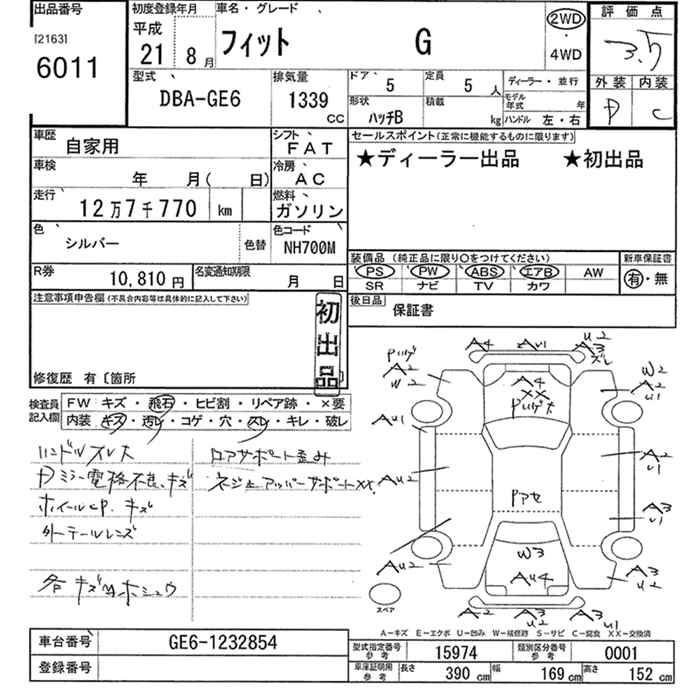 出品番号
[2163]
6011
初度登録年月
平成
21 8月
車名・グレード
フィット G
2WD
・
4WD
評価点
3.5
外装 内装
D C
型式
DBA-GE6
排気量
1339
CC
ドア 5
定員 5 人
形状 ハッチB
積載 kg
ディーラー・並行
モデル年式 年
ハンドル 左・右
車歴 自家用
シフト FAT
車検 年 月( 日)
冷房 AC
走行 12万7千770 km
燃料 ガソリン
色 シルバー 色替
色コード NH700M
R券 10,810円
名変通知期限 月 日
セールスポイント(正常に機能するものに限ります)
★ディーラー出品 ★初出品
装備品 (純正品に限り○をつけてください)
PS PW ABS エアB AW
SR ナビ TV カワ
新車保証書
有・無
後日品
保証書
注意事項申告欄(不具合内容等は具体的に記入して下さい)
初出品
修復歴 有〔箇所
検査員記入欄
FW キズ・飛石・ヒビ割・リペア跡・×要
内装 キズ・汚れ・コゲ・穴・スレ・キレ・破レ
ハンドルスレ
Dミラー電格不良、キズ
ホイールCP. キズ
外テールレンズ
各キズ凹ホシュウ
ロアサポート歪み
ネジ止アッパーサポートXX.
A4 AU1 A3
U2
A2
W2
A4
XX
W2
A2
U2
AU1
U1
AU2
A2
U1
Pアセ
A3
U1
AU2
W3
AU4
A3
U2
スペア
A2
U2
A2
U2
A3
U1
A-キズ E-エクボ U-凹み W-補修跡 S-サビ C-腐食 XX-交換済
車台番号 GE6-1232854
登録番号
型式指定番号
参考
15974
類別区分番号
参考
0001
車庫証明用
参考
長さ 390 cm 幅 169 cm 高さ 152 cm